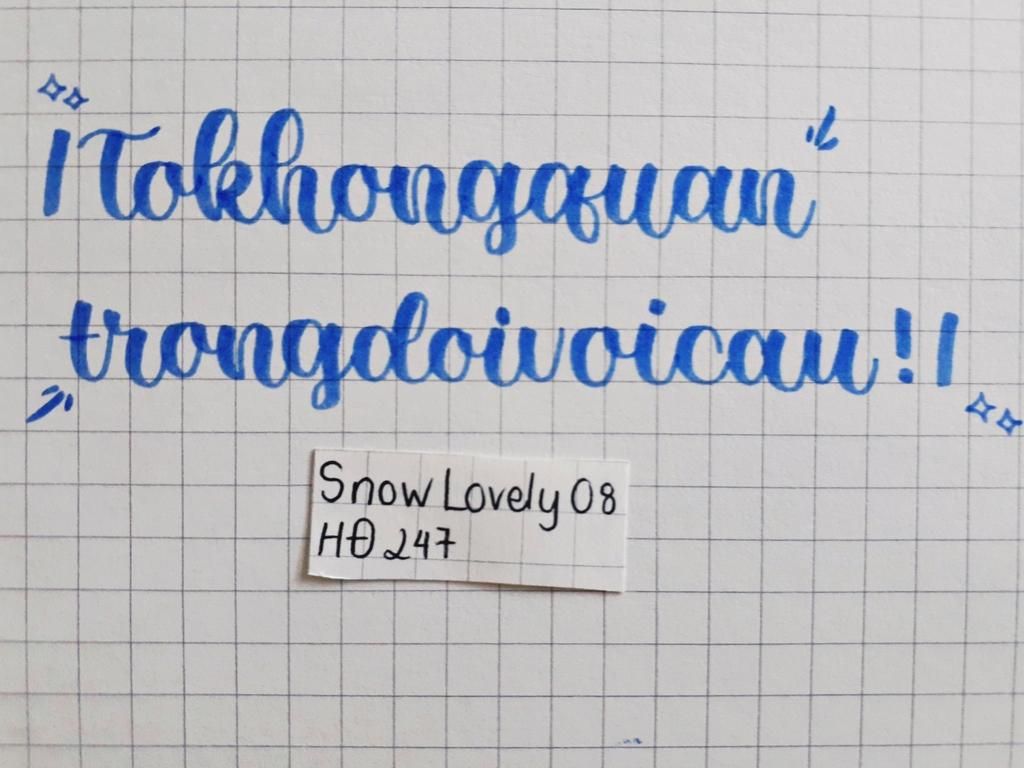 |Tokhongquan
trongdoivoicau!|
Snow Lovely 08
HĐ 247